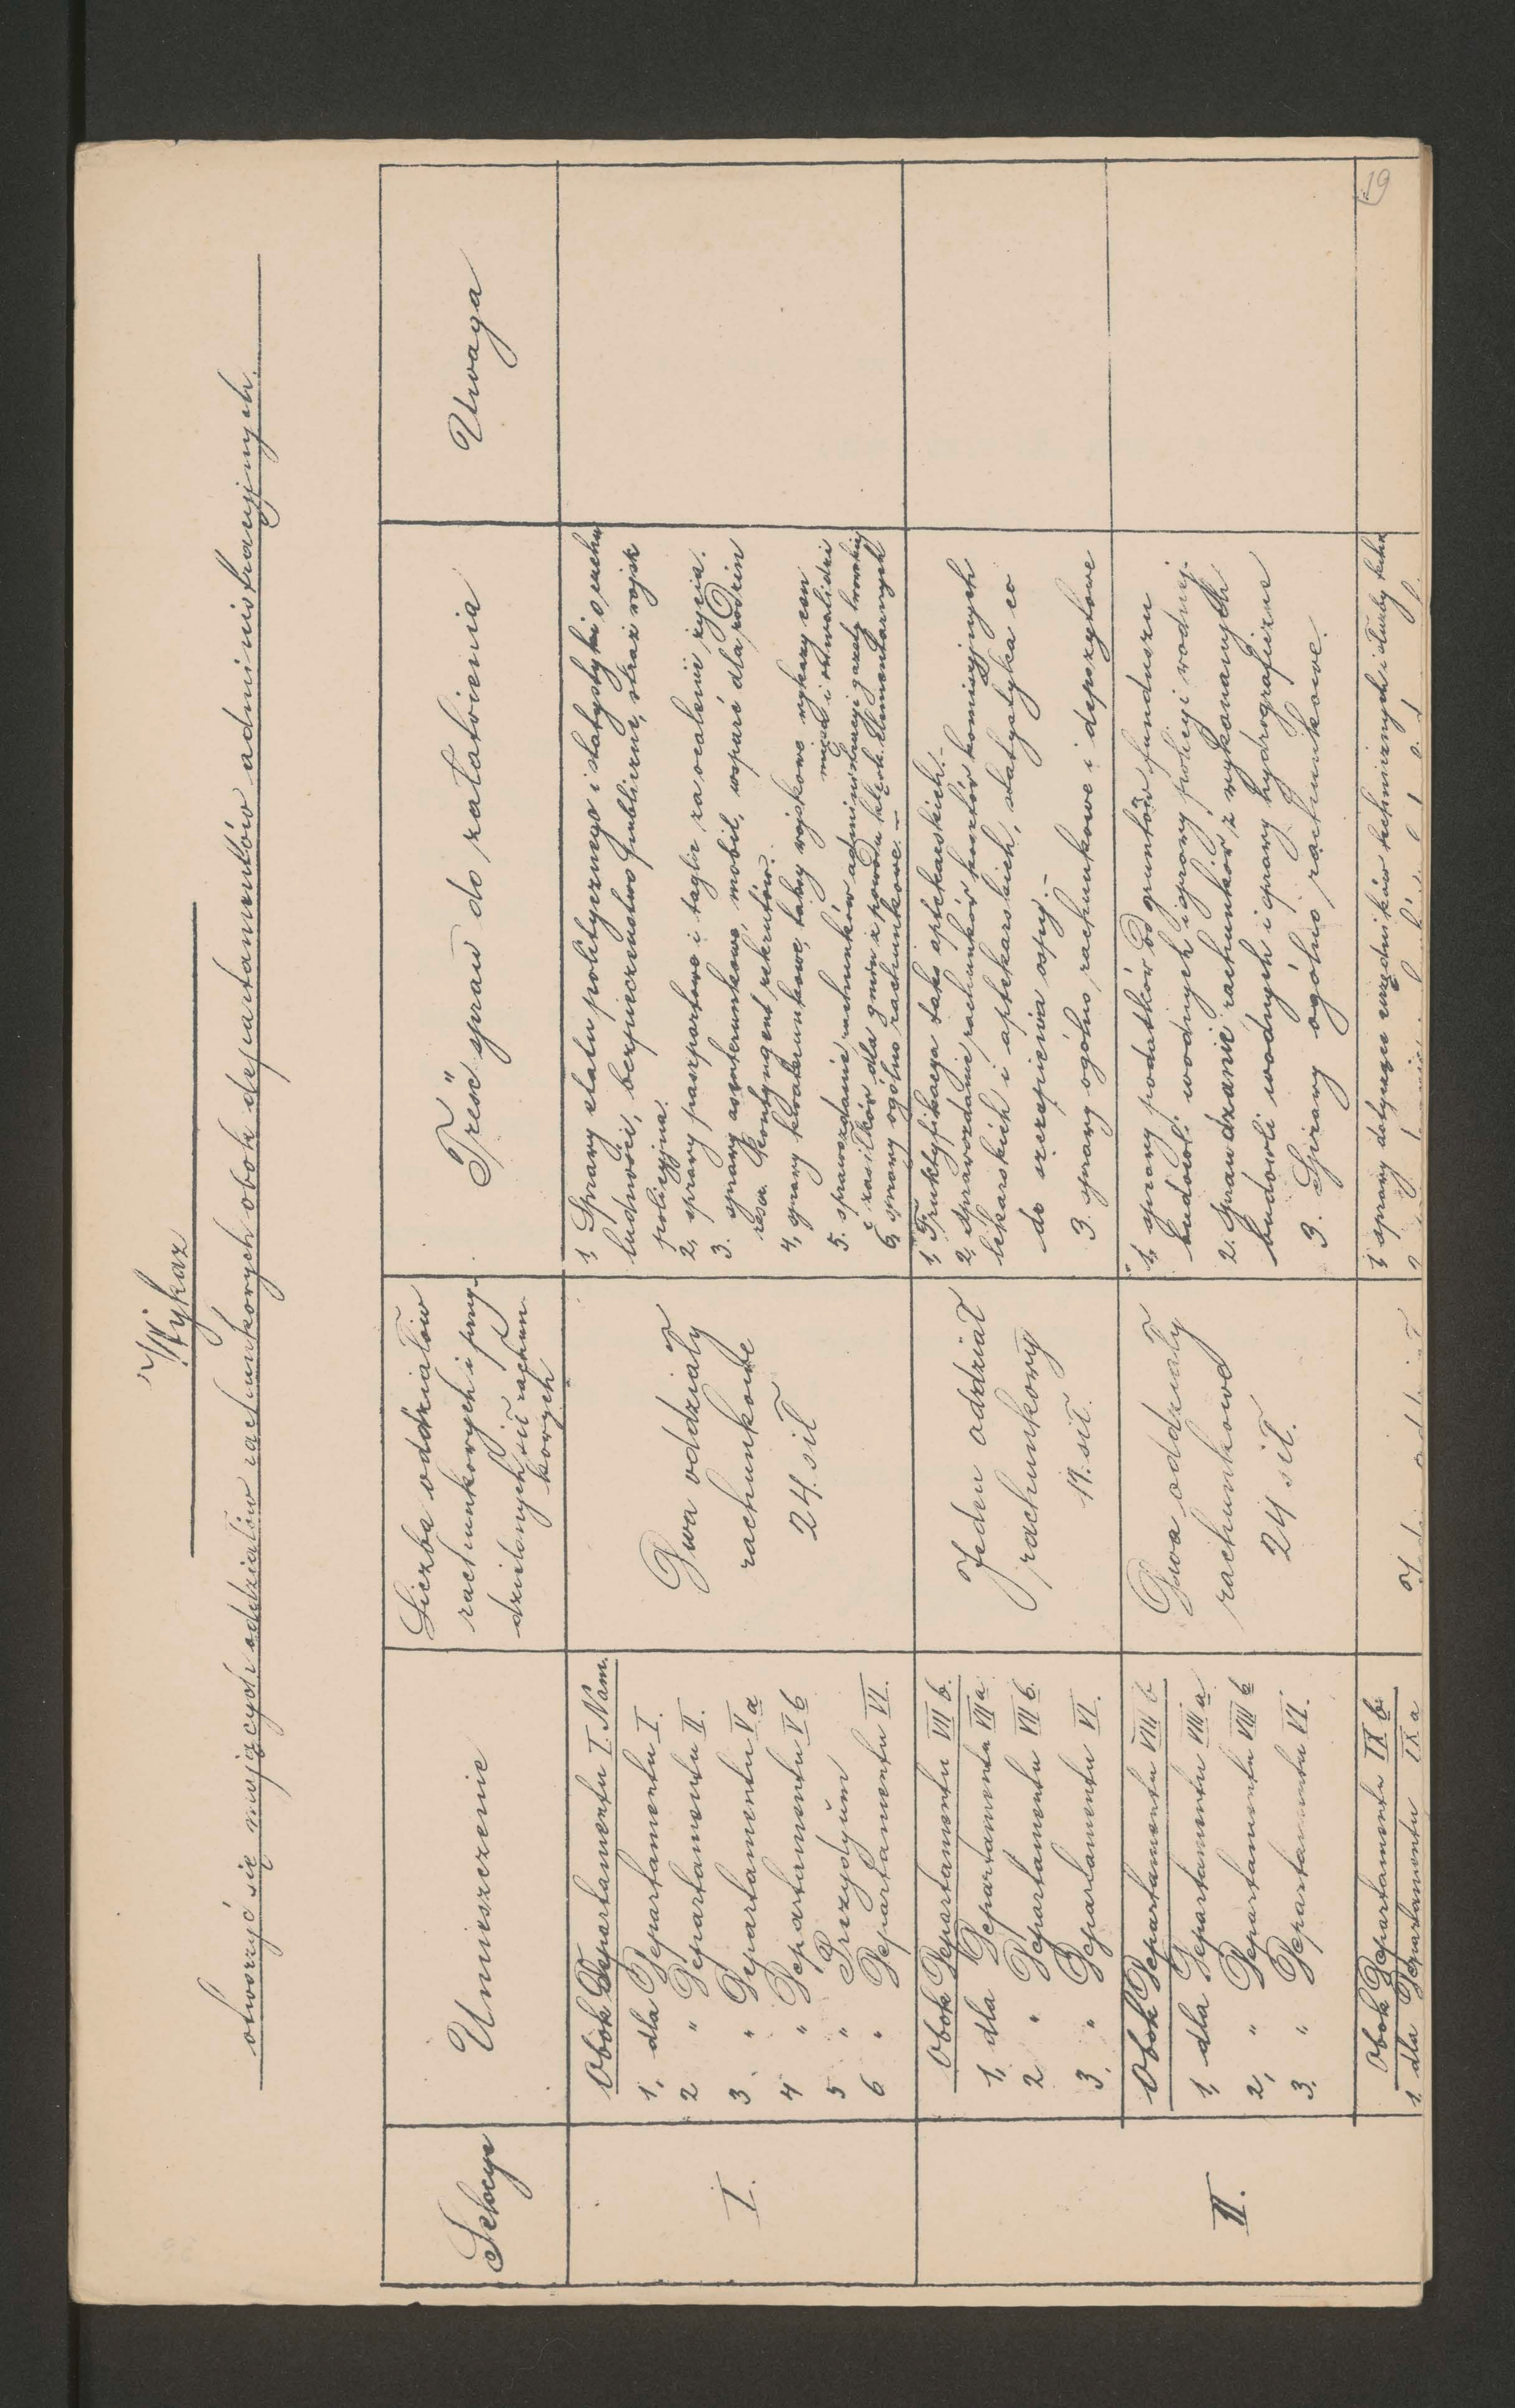 Wykaz
otworzyć się mających oddziałów rachunkowych obok departamentów administracyjnych.
Sekcye
Umieszczenie
Liczba oddziałów
rachunkowych i przy-
dzielonych sił rachun-
kowych
Treść spraw do załatwienia
Uwaga
I.
Obok Departamentu I. Nam.
1, dla Departamentu I.
2 " Departamentu II.
3. " Departamentu V a
4 " Departamentu V b
5 " Prezydyum
6 " Departamentu VI.
Dwa oddziały
rachunkowe
24. sił
1, Sprawy etatu politycznego i statystyki o ruchu
ludności, bezpieczeństwo publiczne, straż wojsk
policyjna.
2, sprawy paszportowe i taglie za ocalenie życia.
3. sprawy asenterunkowe, mobil, wsparć dla rodzin
resw. Kontyngent rekrutów.
4, sprawy kwaterunkowe, taksy wojskowe wykazy cen
mięsa i inwalidzi
5. sprawozdanie rachunków administracyi gazety lwowskiej
i zasiłków dla gmin z powodu klęsk elementarnych
6, sprawy ogólno rachunkowe.-
II.
Obok Departamentu VII b.
1, dla Departamentu VII a
2 " Departamentu VII b.
3, " Departamentu VI.
Jeden oddział
rachunkowy
sił.
1, taks aptekarskich.-
2, sprawozdanie rachunków kosztów komisyjnych
lekarskich i aptekarskich, statystyka co
do szczepienia ospy.-
3. sprawy ogólno rachunkowe i depozytowe
Obok Departamentu VIII b
1, dla Departamentu VIII a
2, " Departamentu VIII b
3. " Departamentu VI.
Dwa oddziały
rachunkowe
24 sił.
1, sprawy podatków od gruntów funduszu
budowli wodnych i sprawy policyi wodnej.
2. Sprawdzanie rachunków z wykonanych
budowli wodnych i sprawy hydrograficzne
3. Sprawy ogólno rachunkowe.
Obok Departamentu IX b.
1. dla Departamentu IX a
1, sprawy dotyczące urzędników technicznych i służby
19